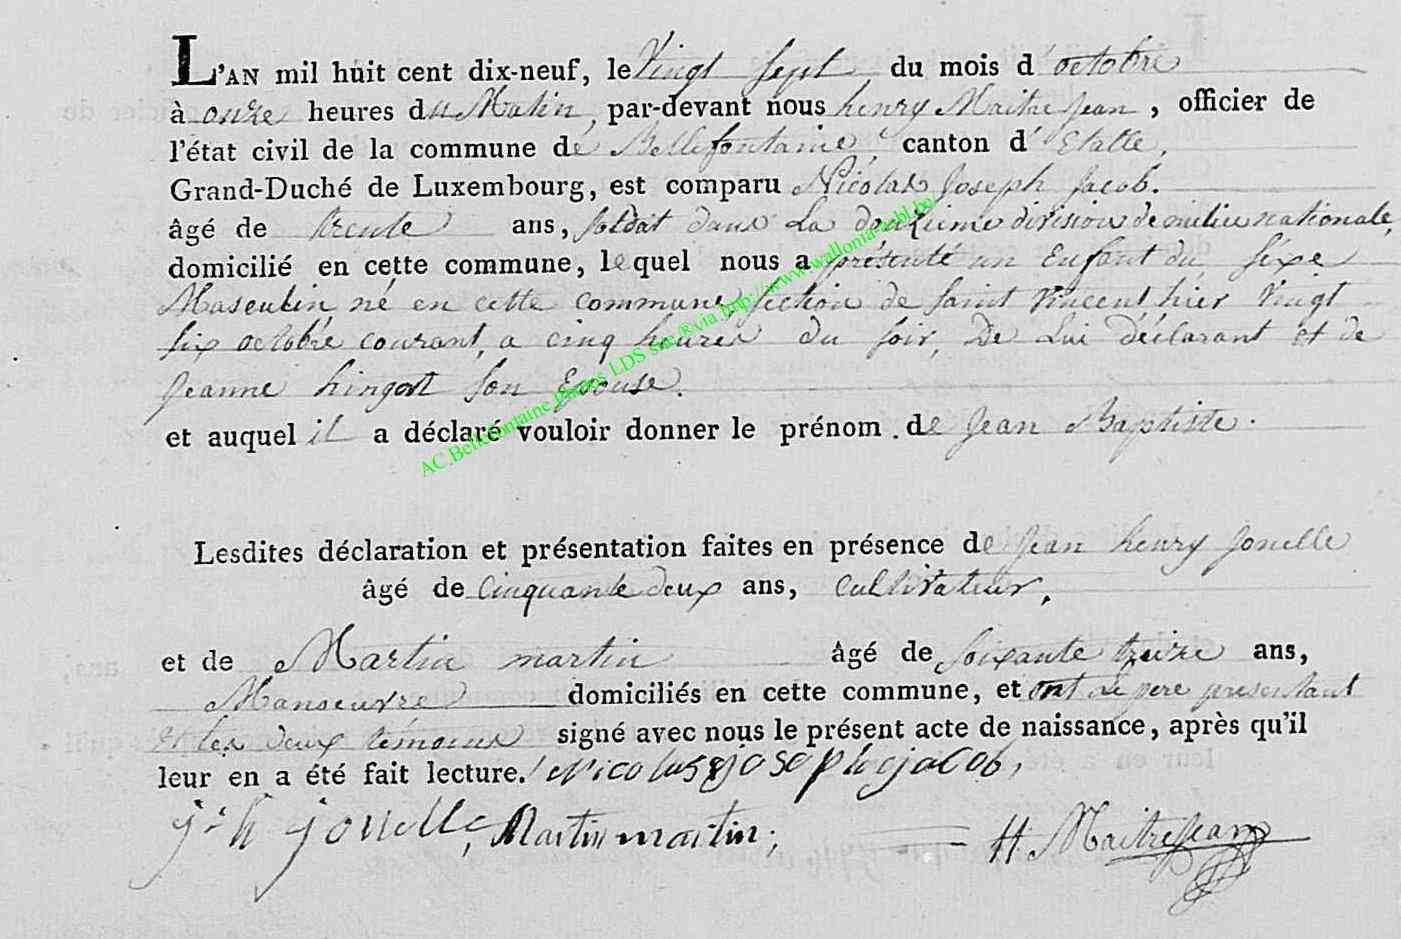 L'AN mil huit cent dix-neuf, le Vingt Sept du mois d'octobre
à onze heures du Matin, par-devant nous henry Maitrejean, officier de
l'état civil de la commune de Bellefontaine canton d'Etalle,
Grand-Duché de Luxembourg, est comparu Nicolas Joseph Jacob.
âgé de trente ans, soldat dans La douzieme division de milice nationale,
domicilié en cette commune, lequel nous a présenté un Enfant du sexe
Masculin né en cette commune, section de saint Vincent hier Vingt
six octobre courant, a cinq heures du soir, De Lui déclarant et de
Jeanne hingot son Epouse.
et auquel il a déclaré vouloir donner le prénom de Jean Baptiste.
Lesdites déclaration et présentation faites en présence de Jean henry Jonelle
âgé de Cinquante deux ans, Cultivateur,
et de Martin martin âgé de soixante treize ans,
Manoeuvre domiciliés en cette commune, et ont Le pere presentant
et les deux témoins signé avec nous le présent acte de naissance, après qu'il
leur en a été fait lecture. Nicolas joseph jacob,
j: h jonelle, Martin martin; H Maitrejean
AC.Bellefontaine photos LDS via http://www.wallonia-asbl.be